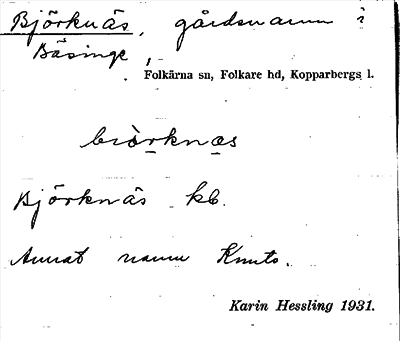 Björknäs, gårdsnamn i
Bäsinge,
Folkärna sn, Folkare hd, Kopparbergs l.
biòrknas
Björknäs kb.
Annat namn Knuts.
Karin Hessling 1931.